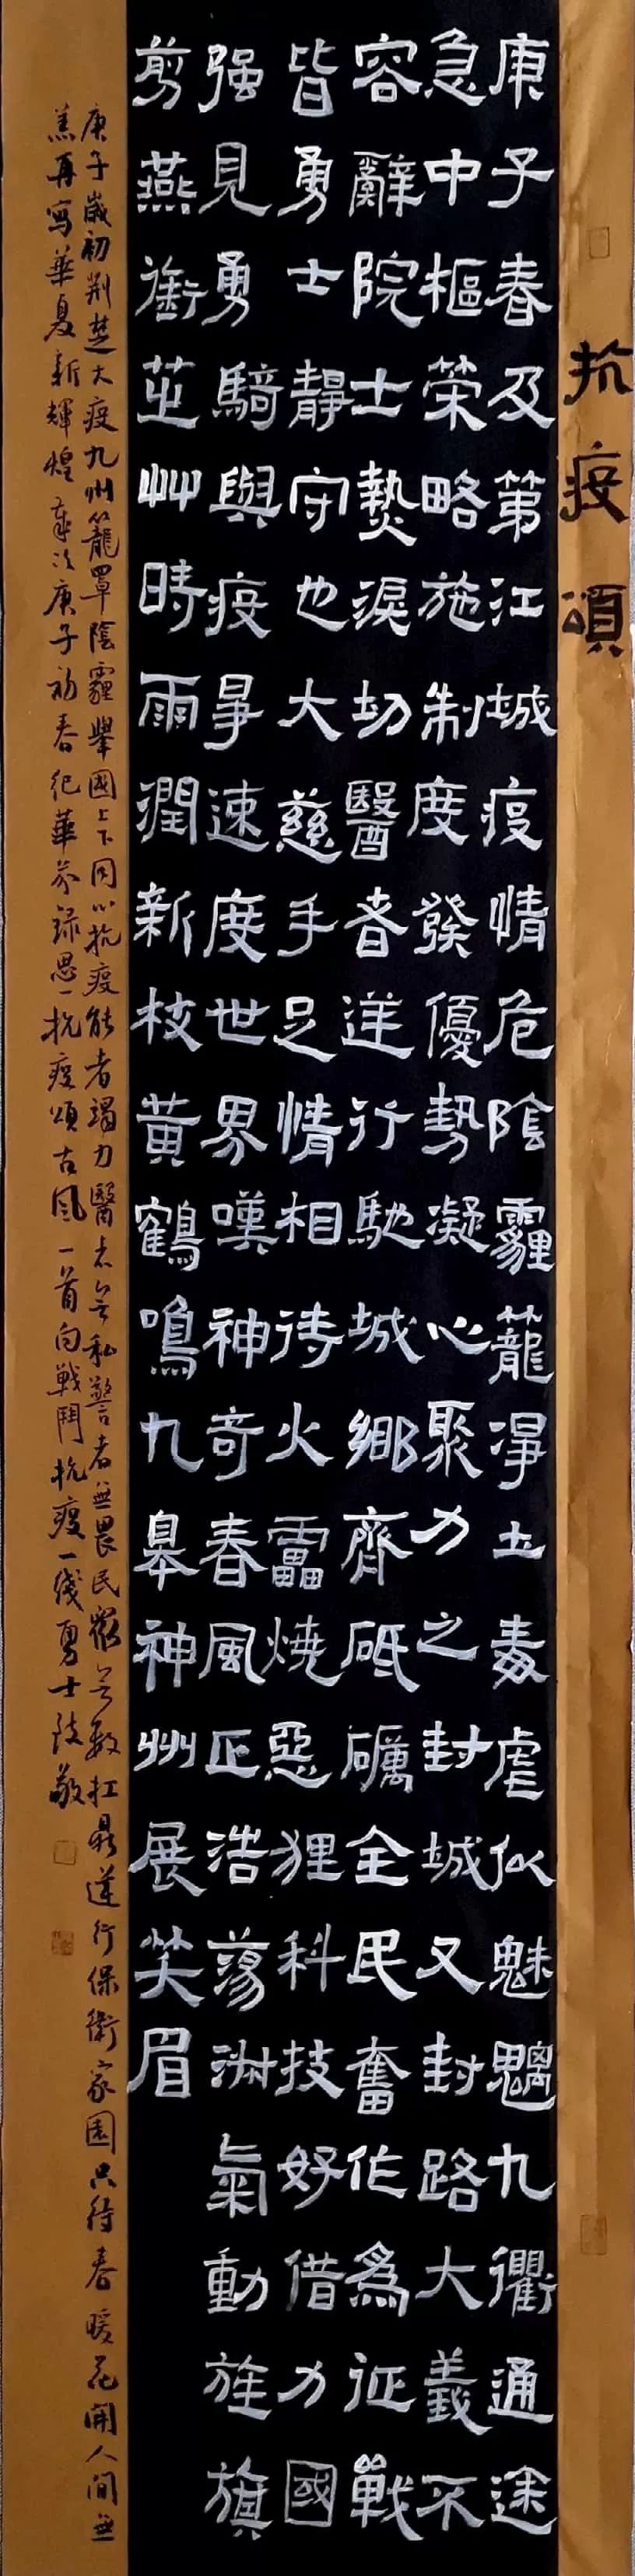 抗疫頌
庚子春及第江城疫情危陰霾籠淨土毒虐似魅魑九衢通途
急中樞榮略施制度發優勢凝心聚力之封城又封路大義不
容辭院士熱淚切醫者逆行馳城鄉齊砥礪全民奮作為征戰
皆勇士靜守也大慈手足情相待火雷燒惡狸科技好借力國
强見勇騎與疫爭速度世界嘆神奇春風正浩蕩洲氣動旌旗
剪燕銜芷艸時雨潤新枝黃鶴鳴九皋神州展笑眉
庚子歲初荆楚大疫九州籠罩陰霾舉國上下同心抗疫能者竭力醫者無私警者無畏民衆無數扛鼎逆行保衛家園只待春暖花開人間無
恙再寫華夏新輝煌歲次庚子初春紀華芬錄思一抗疫頌古風一首向戰鬥抗疫一綫勇士致敬